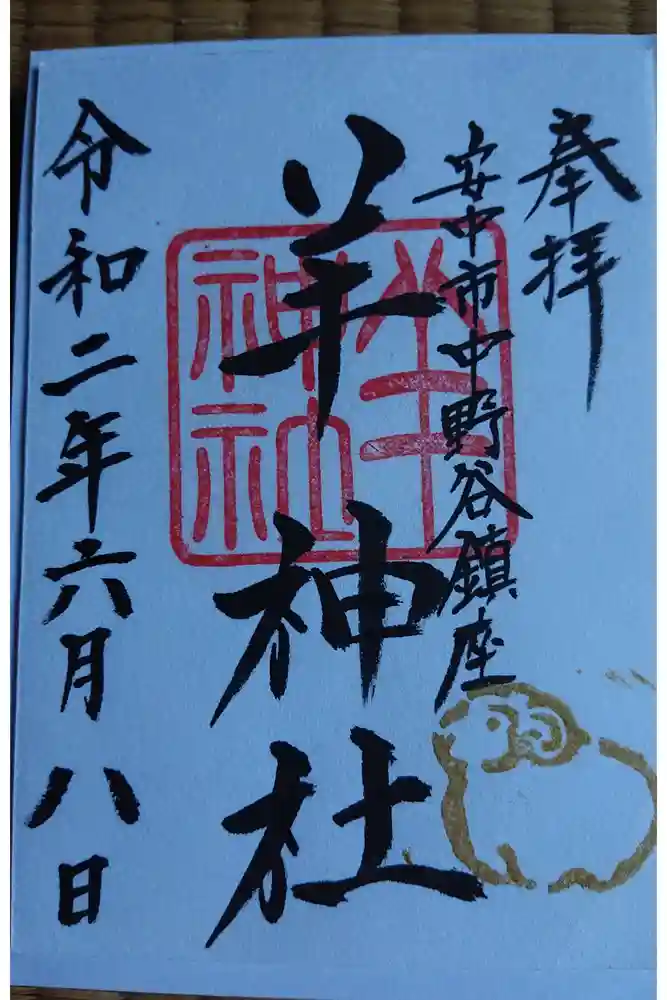 奉拝
安中市中野谷鎮座
羊神社
羊神社
令和二年六月八日